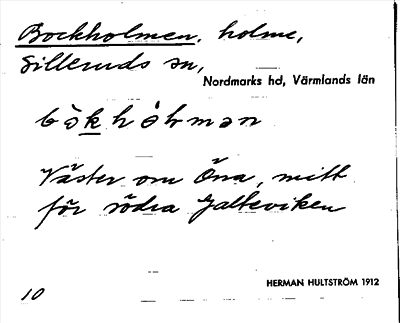 Bockholmen, holme,
Silleruds sn,
Nordmarks hd, Värmlands län
Väster om Öna, mitt
för södra Jalteviken
HERMAN HULTSTRÖM 1912
10